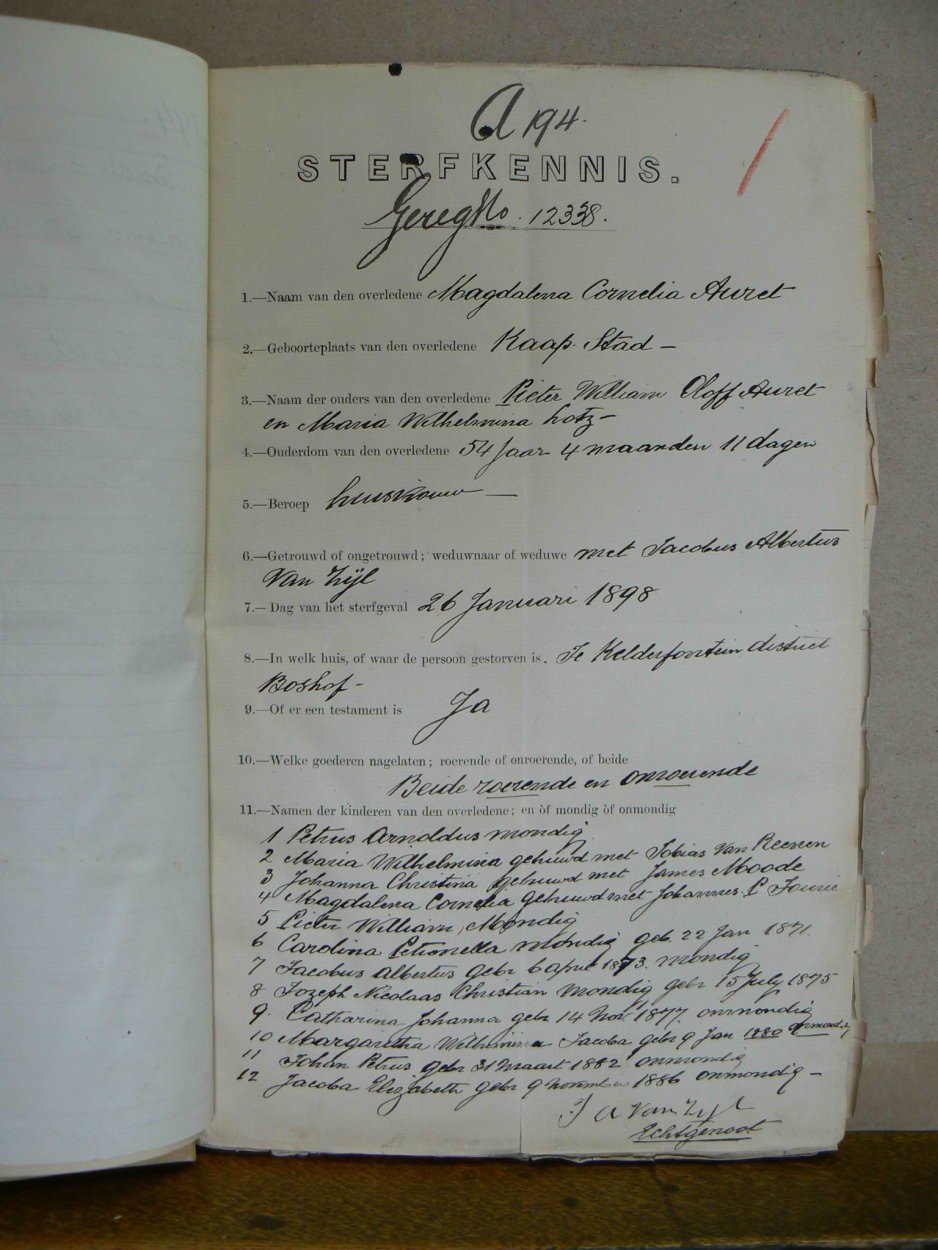 A 194.
STERFKENNIS.
Geregd No. 12338.
1.—Naam van den overledene Magdalena Cornelia Auret
2.—Geboorteplaats van den overledene Kaap Stad —
3.—Naam der ouders van den overledene Pieter William Oloff Auret
en Maria Wilhelmina Lotz —
4.—Ouderdom van den overledene 54 Jaar 4 maanden 11 dagen
5.—Beroep huisvrouw —
6.—Getrouwd of ongetrouwd; weduwnaar of weduwe met Jacobus Albertus
Van Zijl
7.—Dag van het sterfgeval 26 Januari 1898
8.—In welk huis, of waar de persoon gestorven is. Te Kelderfontein district
Boshof -
9.—Of er een testament is Ja
10.—Welke goederen nagelaten; roerende of onroerende, of beide
Beide roerende en onroerende
11.—Namen der kinderen van den overledene; en òf mondig òf onmondig
1 Petrus Arnoldus mondig
2 Maria Wilhelmina gehuwd met Tobias Van Reenen
3 Johanna Christina gehuwd met James Moode
4 Magdalena Cornelia gehuwd met Johannes P Fourie
5 Pieter William, Mondig
6 Carolina Petronella mondig geb. 22 Jan 1871.
7 Jacobus Albertus gebr 6 april 1873. mondig
8 Jozeph Nicolaas Christian mondig gebr 15 July 1875
9. Catharina Johanna gebr 14 Nov. 1877. onmondig
10 Margaretha Wilhelmina Jacoba gebr 9 Jan 1880 onmondig
11 Johan Petrus gebr 31 maart 1882 onmondig
12 Jacoba Elizabeth gebr 9 Novembr 1886 onmondig —
J A Van Zyl
Echtgenoot